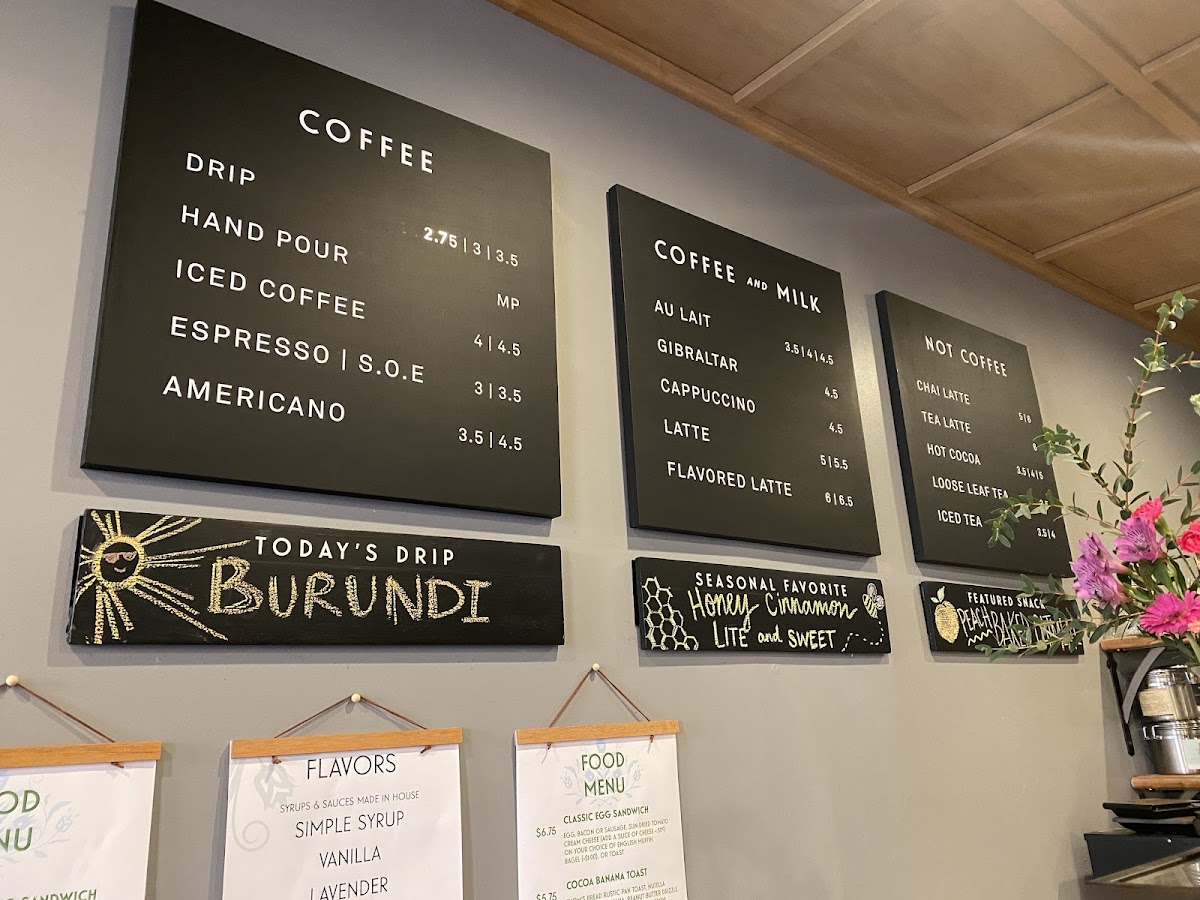 COFFEE
DRIP 2.75 | 3 | 3.5
HAND POUR MP
ICED COFFEE 4 | 4.5
ESPRESSO | S.O.E 3 | 3.5
AMERICANO 3.5 | 4.5
TODAY'S DRIP
BURUNDI
COFFEE AND MILK
AU LAIT 3.5 | 4 | 4.5
GIBRALTAR 4.5
CAPPUCCINO 4.5
LATTE 5 | 5.5
FLAVORED LATTE 6 | 6.5
SEASONAL FAVORITE
Honey Cinnamon
LITE and SWEET
NOT COFFEE
CHAI LATTE 5 | 6
TEA LATTE 6
HOT COCOA 3.5 | 4 | 5
LOOSE LEAF TEA
ICED TEA 3.5 | 4
FEATURED SNACK
PEACH BAKED
OD
NU
SANDWICH
FLAVORS
SYRUPS & SAUCES MADE IN HOUSE
SIMPLE SYRUP
VANILLA
LAVENDER
FOOD
MENU
CLASSIC EGG SANDWICH
$6.75 EGG, BACON OR SAUSAGE, SUN-DRIED TOMATO
CREAM CHEESE (ADD A SLICE OF CHEESE
ON YOUR CHOICE OF ENGLISH MUFFIN,
BAGEL (+$1.00), OR TOAST
COCOA BANANA TOAST
$5.75 BREAD RUSTIC PAN TOAST, NUTELLA
PEANUT BUTTER DRIZZLE